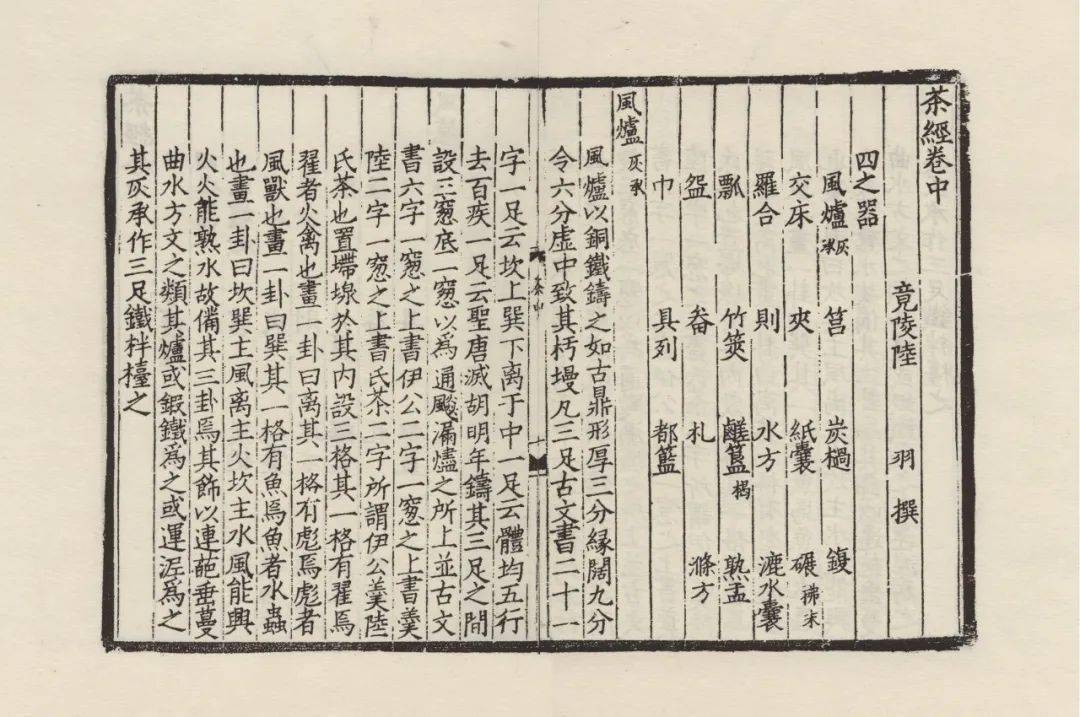 茶經卷中
竟陵陸 羽 撰
四之器
風爐灰承 筥 炭檛 鍑
交床 夾 紙囊 碾拂末
羅合 則 水方 漉水囊
瓢 竹筴 鹺簋楬 熟盂
盌 畚 札 滌方
巾 具列 都籃
風爐灰承
風爐以銅鐵鑄之如古鼎形厚三分緣闊九分
令六分虛中致其杇墁凡三足古文書二十一
字一足云坎上巽下离于中一足云體均五行
去百疾一足云聖唐滅胡明年鑄其三足之間
設三窻底一窻以為通飈漏燼之所上並古文
書六字一窻之上書伊公二字一窻之上書羹
陸二字一窻之上書氏茶二字所謂伊公羹陸
氏茶也置墆㙞於其內設三格其一格有翟焉
翟者火禽也畫一卦曰离其一格有彪焉彪者
風獸也畫一卦曰巽其一格有魚焉魚者水蟲
也畫一卦曰坎巽主風离主火坎主水風能興
火火能熟水故備其三卦焉其飾以連葩垂蔓
曲水方文之類其爐或鍜鐵為之或運泥為之
其灰承作三足鐵柈檯之
茶中
十